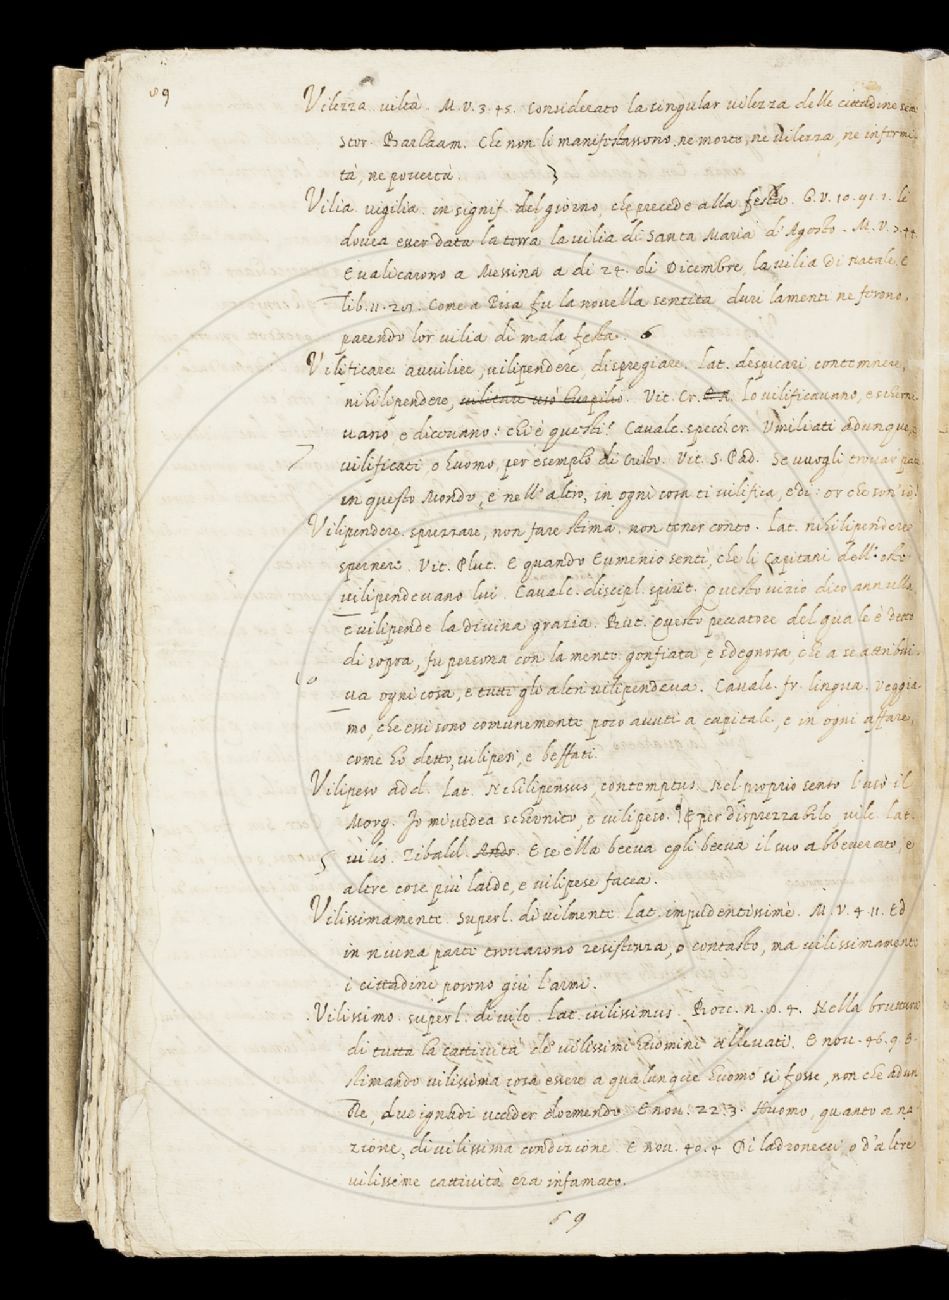 89
Vilezza. viltà. M. V. 3. 45. Considerato la singular vilezza delle cittadine
stor. Barlaam. Che non li manifestassono, ne morte, ne vilezza, ne infermi
tà, ne povertà. 3
Vilia. vigilia. in signif. del giorno, che precede alla festa. G. V. 10. 91. 1. li
dovea esser data la terra la vilia di Santa Maria d'Agosto. M. V. 2. 44.
E valicarono a Messina a di 24. di Dicembre, la vilia di Natale. E
lib. 11. 201. Come a Pisa fu la novella sentita duri lamenti ne ferono,
parendo lor vilia di mala festa. 6
Vilificare avvilire, vilipendere, dispregiare. Lat. despicari contemnere,
nihilipendere, Vit. Cr. Lo vilificavano, e scherni
vano, e dicevano: chi è questi? Cavalc. specch. cr. Vmiliati adunque,
7 vilificati o huomo, per esemplo di Cristo. Vit. S. Pad. Se vuogli trovar pace
in questo Mondo, e nell'altro, in ogni cosa ti vilifica, e di: or che son'io?
Vilipendere. sprezzare, non fare stima. non tener conto. Lat. nihilipendere
spernere. Vit. Plut. E quando Eumenio sentì, che li Capitani dell'oste
vilipendevano lui. Cavalc. discipl. spirit. Questo vizio dico annulla,
e vilipende la divina grazia. But. Questo peccatore del quale è detto
di sopra, fu persona con la mente gonfiata, e sdegnosa, che a se attribui
va ogni cosa, e tutti gli altri vilipendeva. Cavalc. fr. lingua. Veggia
mo, che essi sono comunemente poco avuti a capitale, e in ogni affare,
come ho detto, vilipesi, e beffati.
Vilipeso add. Lat. Nihilipensus, contemptus. Nel proprio senso l'usò il
Morg. Io mi vedea schernito, e vilipeso. E per disprezzabile vile. Lat.
5 vilis. Zibald. Andr. E se ella beeva egli beeva il suo abbeverato, e
altre cose più laide, e vilipese facea.
Vilissimamente. Superl. di vilmente. Lat. impudentissimè. M. V. 4. 11. Ed
in niuna parte trovarono resistenza, o contasto, ma vilissimamente
i cittadini posono giù l'armi.
Vilissimo. superl. di vile. Lat. vilissimus. Bocc. n. 10. 4. Nella bruttura
di tutta la cattività de' vilissimi huomini allevati. E nov. 46. 9 E
stimando vilissima cosa essere a qualunque huomo si fosse, non che ad un
Re, due ignudi uccider dormendo. E nov. 22. 3. Huomo, quanto a na
zione, di vilissima condizione. E nov. 40. 4 Di ladronecci, o d'altre
vilissime cattività era infamato.
69